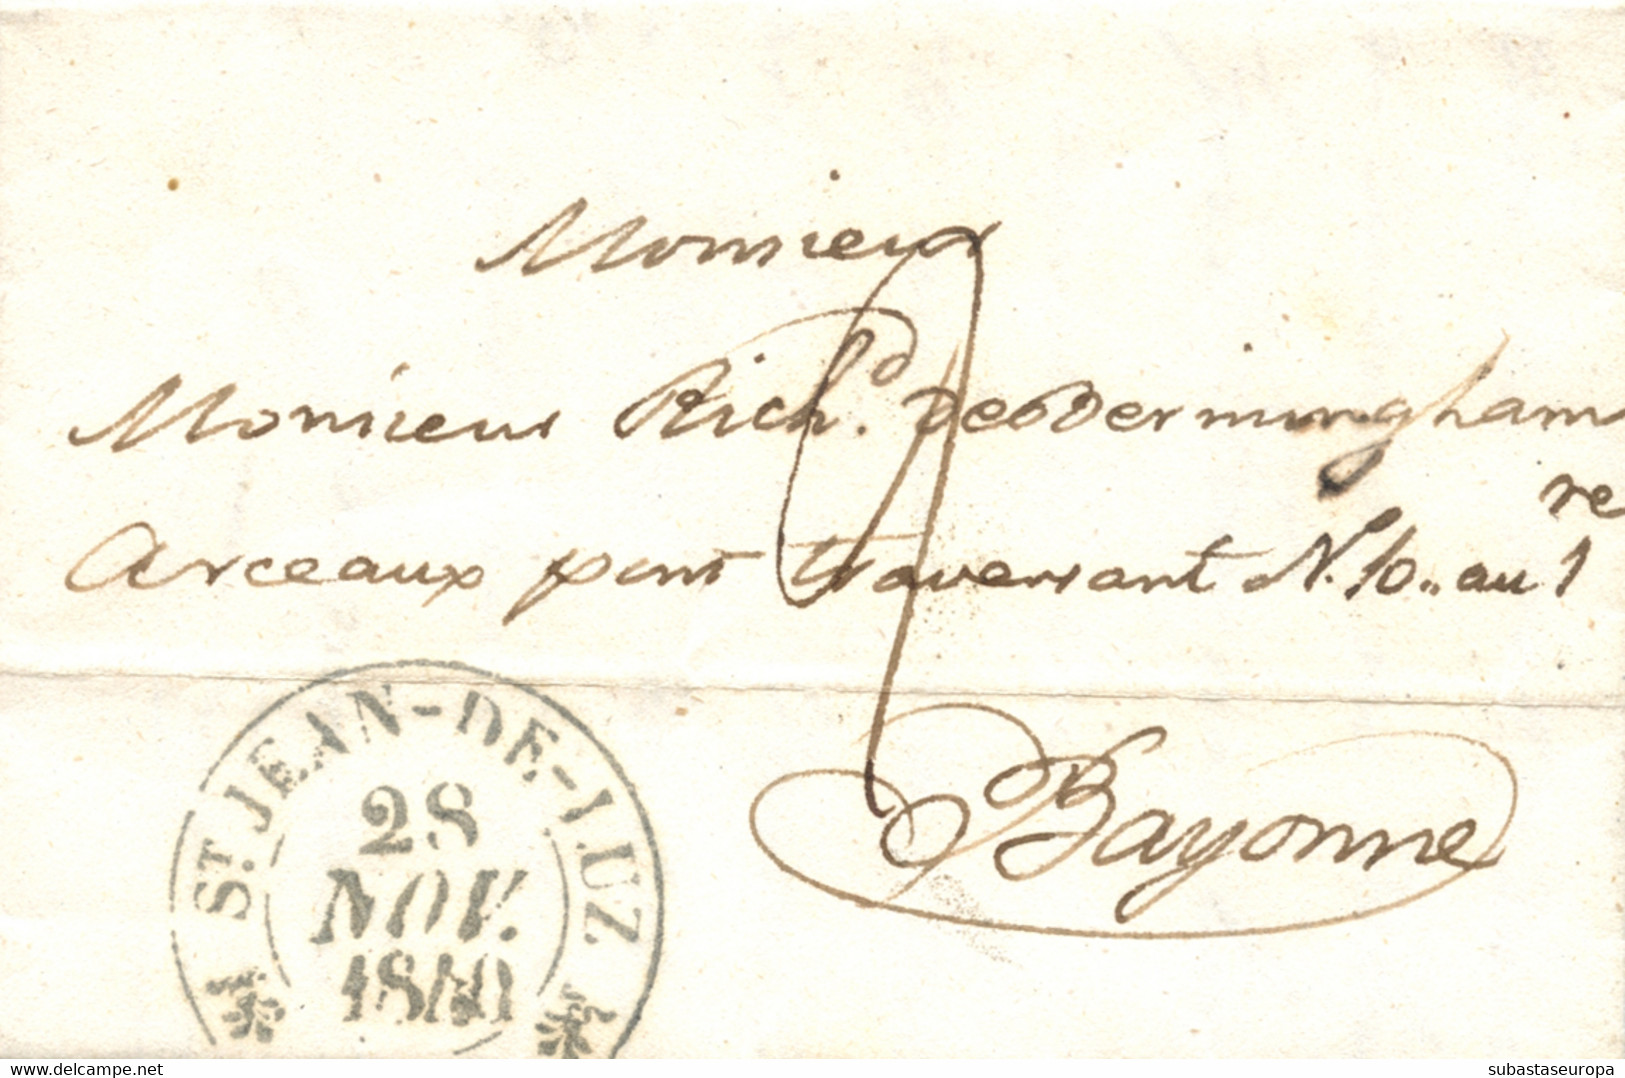 Monsieur
Monsieur Rich.d de Bermingham
re
Arceaux pont traversant N. 10. au 1
Bayonne
ST. JEAN-DE-LUZ
28
NOV.
1840
delcampe.net
subastaseuropa